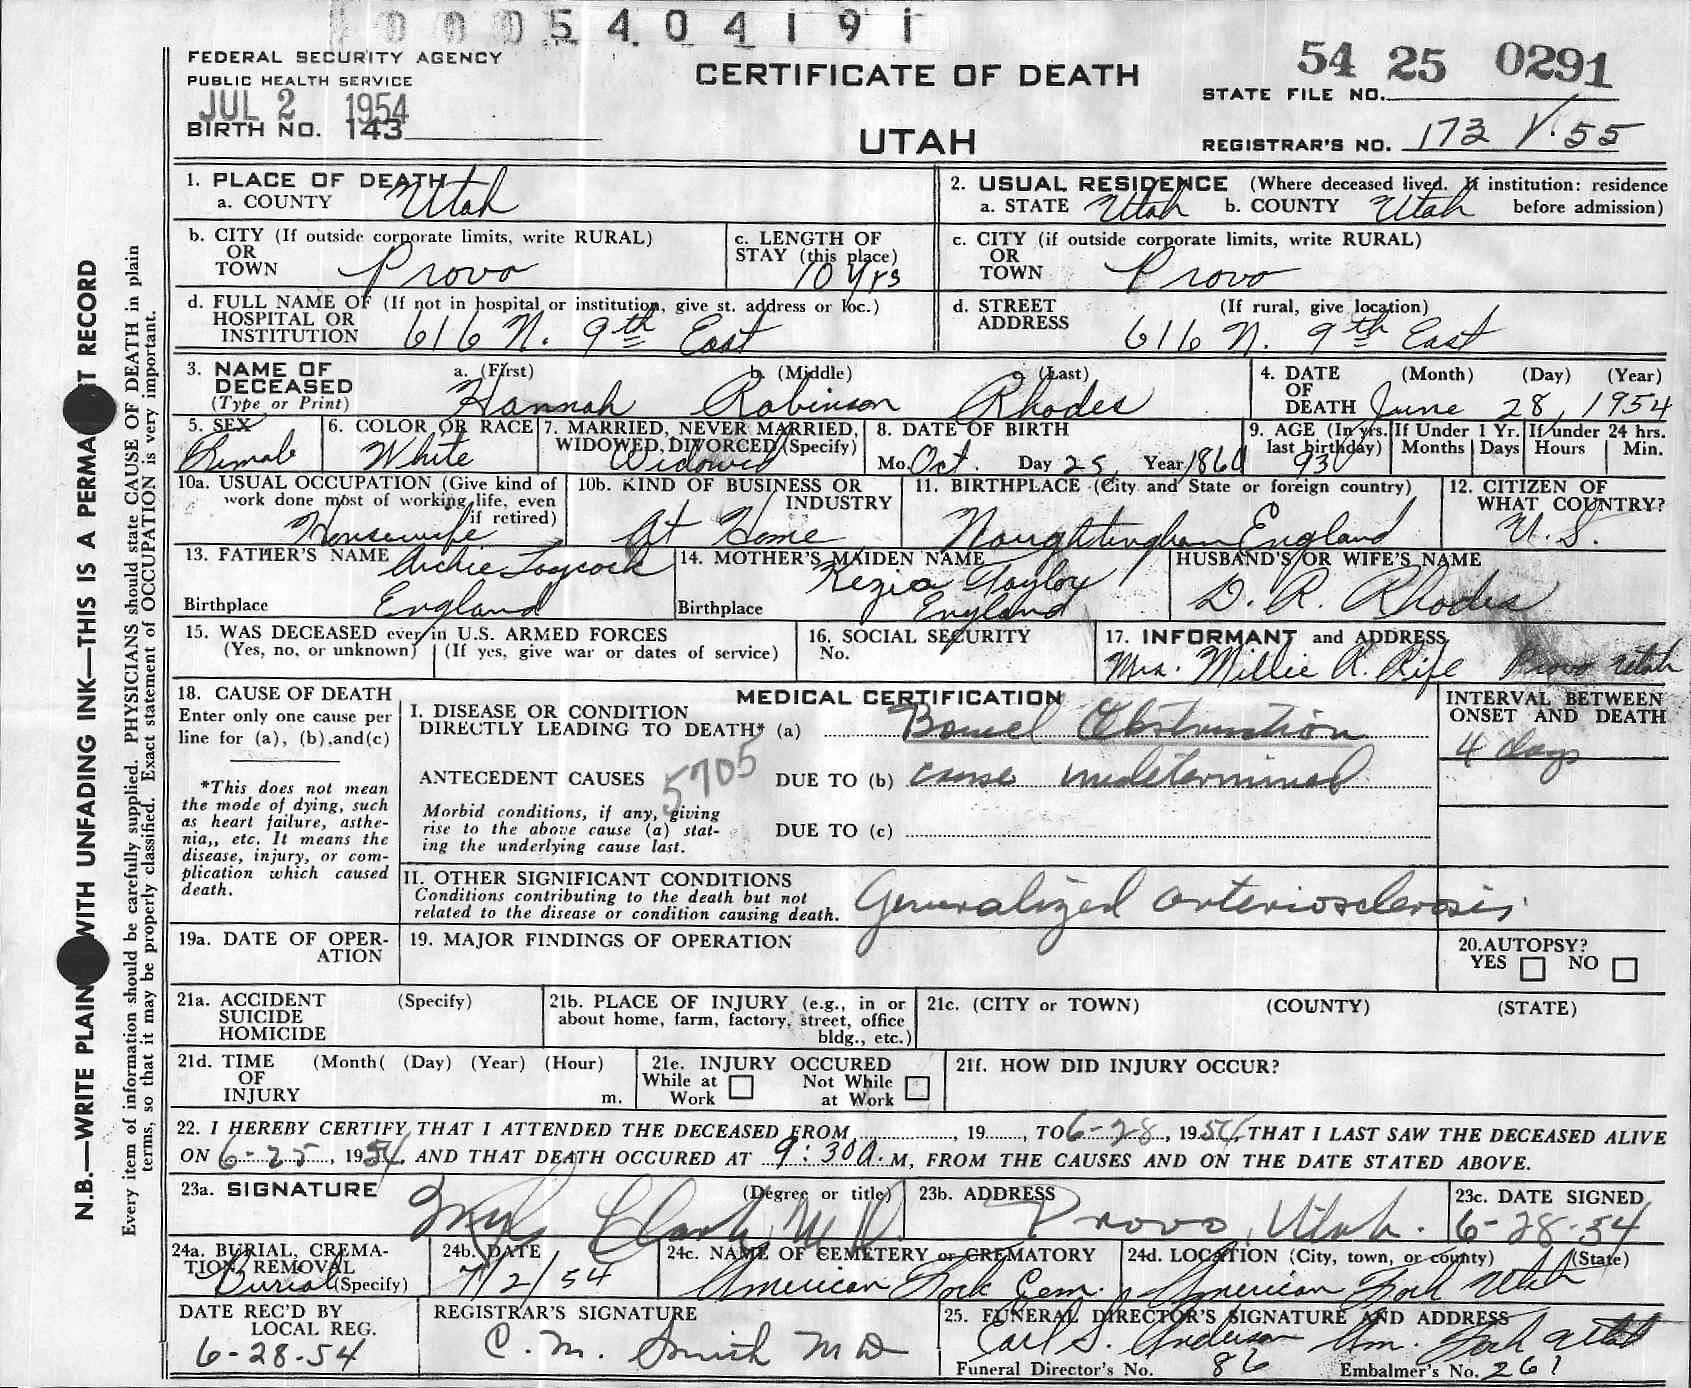 0005404191
FEDERAL SECURITY AGENCY
PUBLIC HEALTH SERVICE
JUL 2 1954
BIRTH NO. 143
CERTIFICATE OF DEATH
UTAH
54 25 0291
STATE FILE NO.
REGISTRAR'S NO. 173 V.55
N.B.—WRITE PLAIN WITH UNFADING INK—THIS IS A PERMA T RECORD
Every item of information should be carefully supplied. PHYSICIANS should state CAUSE OF DEATH in plain
terms, so that it may be properly classified. Exact statement of OCCUPATION is very important.
1. PLACE OF DEATH
a. COUNTY Utah
2. USUAL RESIDENCE (Where deceased lived. If institution: residence
a. STATE Utah b. COUNTY Utah before admission)
b. CITY (If outside corporate limits, write RURAL)
OR
TOWN Provo
c. LENGTH OF
STAY (this place)
10 Yrs
c. CITY (if outside corporate limits, write RURAL)
OR
TOWN Provo
d. FULL NAME OF (If not in hospital or institution, give st. address or loc.)
HOSPITAL OR
INSTITUTION 616 N. 9th East
d. STREET (If rural, give location)
ADDRESS 616 N. 9th East
3. NAME OF
DECEASED
(Type or Print)
a. (First) b. (Middle) c. (Last)
Hannah Robinson Rhodes
4. DATE (Month) (Day) (Year)
OF
DEATH June 28, 1954
5. SEX
Female
6. COLOR OR RACE
White
7. MARRIED, NEVER MARRIED,
WIDOWED, DIVORCED (Specify)
Widowed
8. DATE OF BIRTH
Mo. Oct. Day 25, Year 1860
9. AGE (In yrs.
last birthday)
93
If Under 1 Yr.
Months Days
If under 24 hrs.
Hours Min.
10a. USUAL OCCUPATION (Give kind of
work done most of working life, even
if retired)
Housewife
10b. KIND OF BUSINESS OR
INDUSTRY
At Home
11. BIRTHPLACE (City and State or foreign country)
Noughtingham England
12. CITIZEN OF
WHAT COUNTRY?
U.S.
13. FATHER'S NAME Archie Laycock
Birthplace England
14. MOTHER'S MAIDEN NAME
Kezia Taylor
Birthplace England
HUSBAND'S OR WIFE'S NAME
D. R. Rhodes
15. WAS DECEASED ever in U.S. ARMED FORCES
(Yes, no, or unknown) (If yes, give war or dates of service)
16. SOCIAL SECURITY
No.
17. INFORMANT and ADDRESS
Mrs. Millie R. Rife Provo Utah
18. CAUSE OF DEATH
Enter only one cause per
line for (a), (b), and (c)
*This does not mean
the mode of dying, such
as heart failure, asthe-
nia,, etc. It means the
disease, injury, or com-
plication which caused
death.
MEDICAL CERTIFICATION
I. DISEASE OR CONDITION
DIRECTLY LEADING TO DEATH* (a) Bowel Obstruction
ANTECEDENT CAUSES 5705 DUE TO (b) cause undetermined
Morbid conditions, if any, giving
rise to the above cause (a) stat-
ing the underlying cause last.
DUE TO (c)
INTERVAL BETWEEN
ONSET AND DEATH
4 days
II. OTHER SIGNIFICANT CONDITIONS
Conditions contributing to the death but not
related to the disease or condition causing death.
Generalized arteriosclerosis
19a. DATE OF OPER-
ATION
19. MAJOR FINDINGS OF OPERATION
20. AUTOPSY?
YES NO
21a. ACCIDENT (Specify)
SUICIDE
HOMICIDE
21b. PLACE OF INJURY (e.g., in or
about home, farm, factory, street, office
bldg., etc.)
21c. (CITY or TOWN) (COUNTY) (STATE)
21d. TIME (Month( (Day) (Year) (Hour)
OF
INJURY m.
21e. INJURY OCCURED
While at Not While
Work at Work
21f. HOW DID INJURY OCCUR?
22. I HEREBY CERTIFY THAT I ATTENDED THE DECEASED FROM , 19 , TO 6-28, 1954, THAT I LAST SAW THE DECEASED ALIVE
ON 6-25, 1954, AND THAT DEATH OCCURED AT 9:30 A. M, FROM THE CAUSES AND ON THE DATE STATED ABOVE.
23a. SIGNATURE (Degree or title)
Clark M D
23b. ADDRESS
Provo, Utah.
23c. DATE SIGNED
6-28-54
24a. BURIAL, CREMA-
TION, REMOVAL
Burial (Specify)
24b. DATE
7/2/54
24c. NAME OF CEMETERY or CREMATORY
American Fork Cem.
24d. LOCATION (City, town, or county) (State)
American Fork Utah
DATE REC'D BY
LOCAL REG.
6-28-54
REGISTRAR'S SIGNATURE
C. M. Smith M D
25. FUNERAL DIRECTOR'S SIGNATURE AND ADDRESS
Earl S. Anderson Am. Fork Utah
Funeral Director's No. 86 Embalmer's No. 261